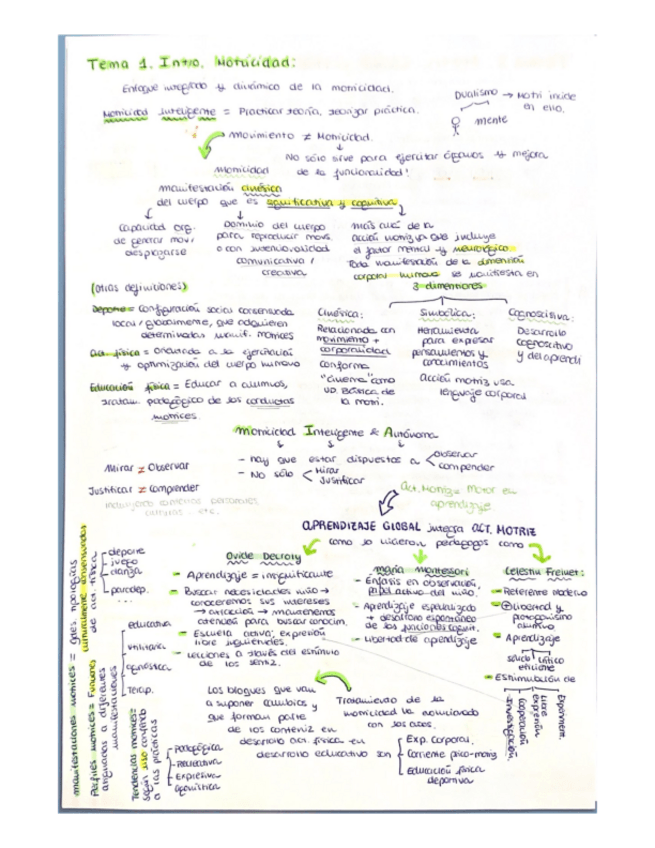 Tema 1. Intro. Motricidad:
Enfoque integrado y dinámico de la motricidad.
Dualismo → Motri incide
en ello.
mente
Motricidad Inteligente = Practicar teoría, teorizar práctica.
Movimiento ≠ Motricidad.
No sólo sirve para ejercitar órganos y mejora
de la funcionalidad!
Motricidad
manifestación cinésica
del cuerpo que es significativa y cognitiva
Capacidad org.
de generar mov/
desplazarse
Dominio del cuerpo
para reproducir movs.
o con intencionalidad
comunicativa /
creativa
más allá de la
acción motriz ya que incluye
el factor mental y neurológico.
Toda manifestación de la dimensión
corporal humana se manifiesta en
3 dimensiones
(otras definiciones)
Deporte = Configuración social consensuada
local/globalmente, que adquieren
determinadas manif. motrices
Act. física = Orientada a la ejercitación
y optimización del cuerpo humano
Educación física = Educar a alumnos,
tratam. pedagógico de las conductas
motrices.
Cinésica:
Relacionada con
movimiento +
corporalidad
conforma
"cinema" como
UD. Básica de
la motri.
Simbólica:
Herramienta
para expresar
pensamientos y
conocimientos
acción motriz usa
lenguaje corporal
Cognoscitiva:
Desarrollo
cognoscitivo
y del aprendi
Motricidad Inteligente & Autónoma
- hay que estar dispuestos a
observar
comprender
- No sólo
Mirar
Justificar
Mirar ≠ Observar
Justificar ≠ Comprender
Act. Motriz = Motor en
aprendizaje
APRENDIZAJE GLOBAL integra ACT. MOTRIZ
como lo hicieron pedagogos como
Ovide Decroly
- Aprendizaje = insignificante
- Buscar necesidades niño →
conoceremos sus intereses
→ atracción → mantenemos
atención para buscar conocim.
- Escuela activa; expresión
libre
- lecciones a través del estímulo
de los sents.
María Montessori
- Énfasis en observación,
papel activo del niño.
- Aprendizaje especializado
→ desarrollo espontáneo
de las funciones cognit.
- Libertad de aprendizaje
Celestin Freinet:
- Referente moderno
- Libertad y
protagonismo
- Aprendizaje
sólido crítico
eficiente
- Estimulación de
Investigación
Cooperación
Libre
expresión
Experiment.
manifestaciones motrices = tipologías
culturalmente consensuadas
de act. física
deporte
juego
danza
pardep.
...
Perfiles motrices = Funciones
asignadas a diferentes
manifestaciones
educativa
utilitaria
agonística
terap.
Tendencias motrices =
según uso conferido
a las prácticas
Pedagógica
Recreativa
Expresiva
agonística
Los bloques que van
a suponer cambios y
que forman parte
de los contenis en
desarrollo act. física en
desarrollo educativo son
Exp. Corporal.
Corriente psico-motriz
Educación física
deportiva
Tratamiento de la
motricidad ha evolucionado
con los años.